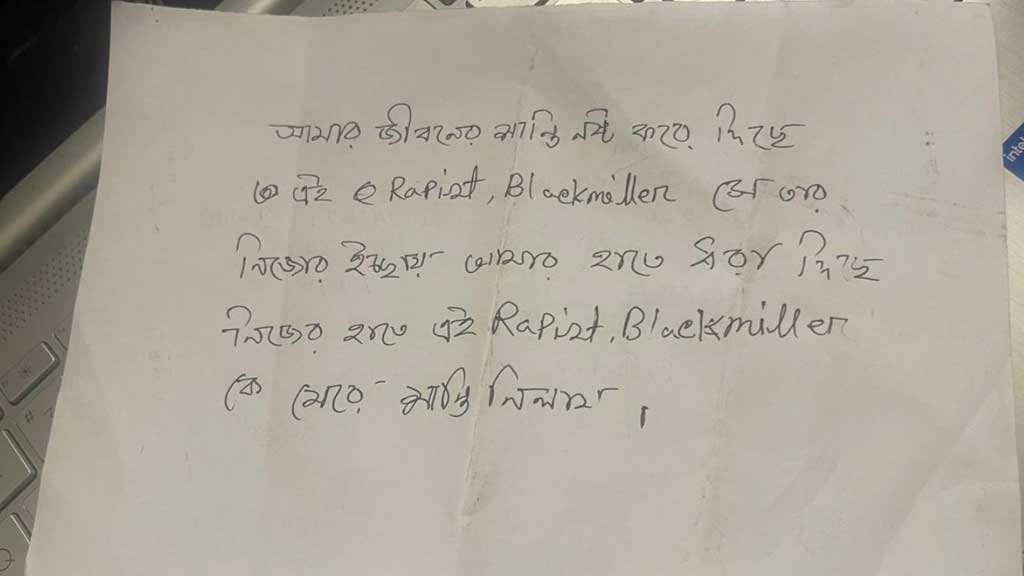 আমার জীবনের শান্তি নষ্ট করে দিছে
এই Rapist, Blackmiller সে তার
নিজের ইচ্ছায় আমার হাতে ধরা দিছে
নিজের হাতে এই Rapist, Blackmiller
কে মেরে শান্তি নিলাম।